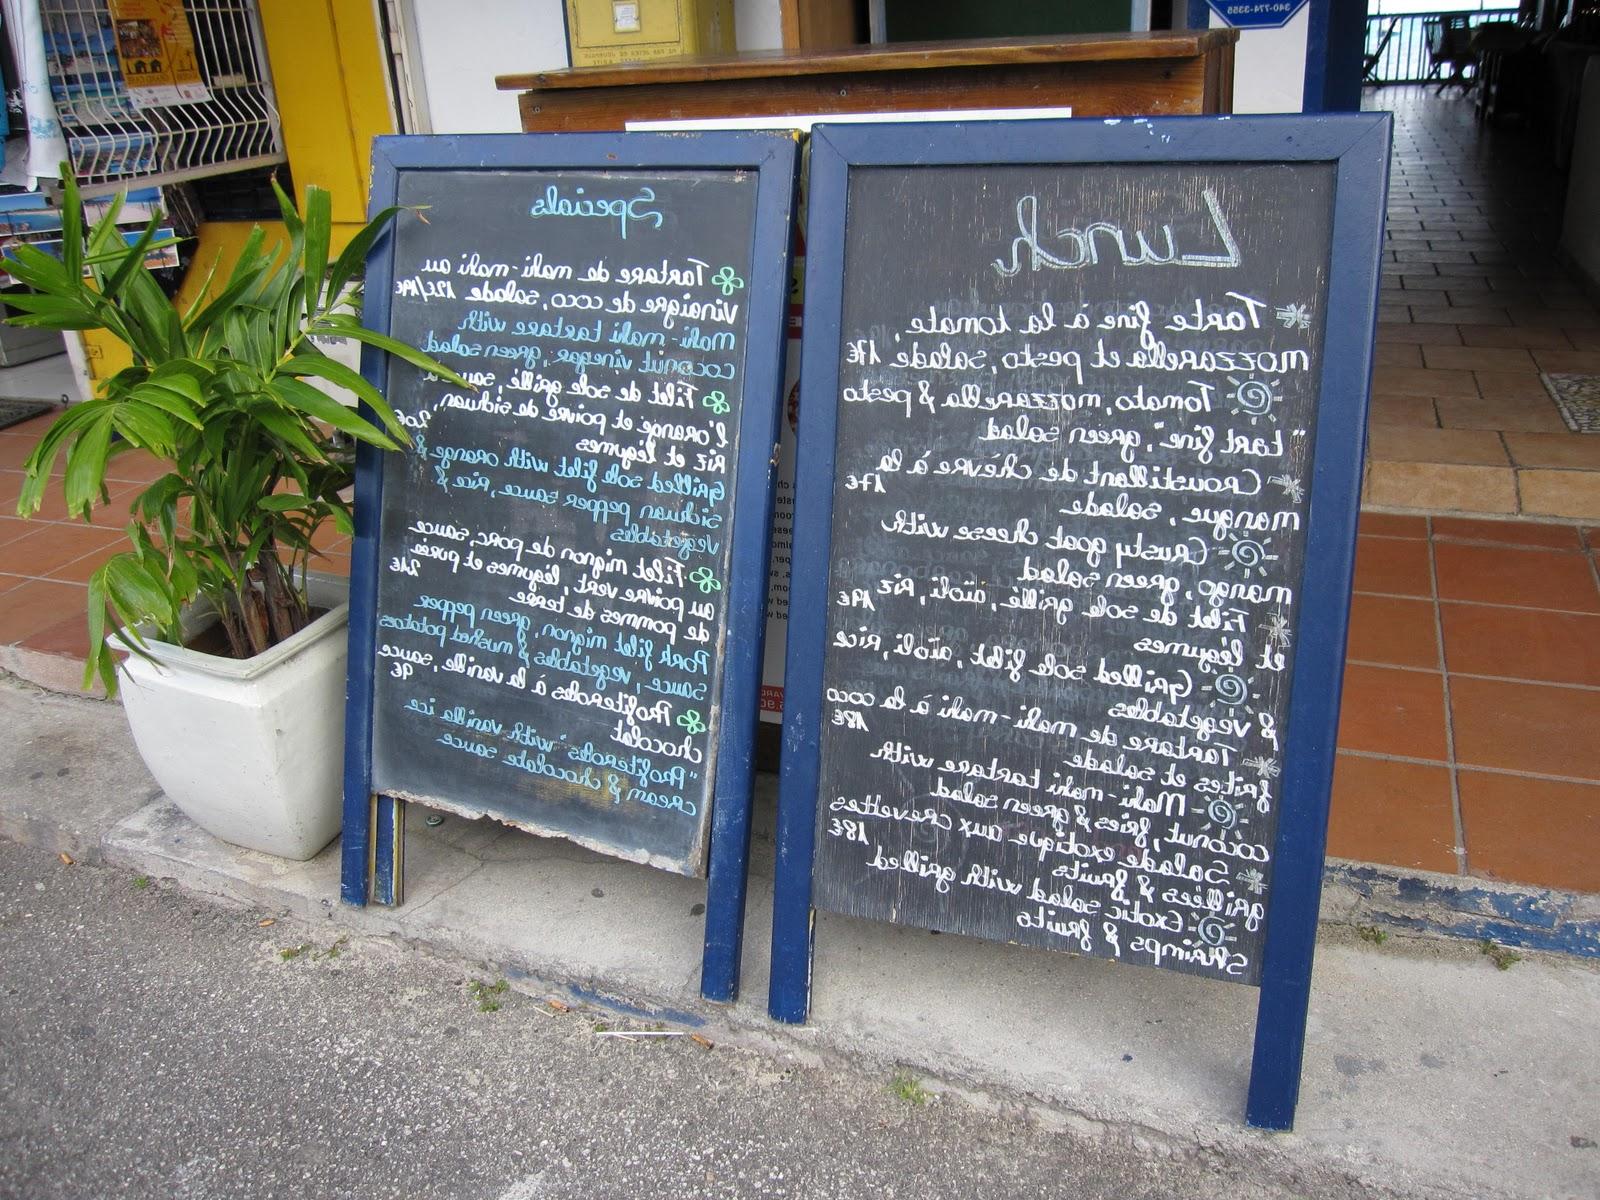 Lunch
Tarte fine à la tomate
mozzarella et pesto, salade 17€
Tomato, mozzarella & pesto
"tart fine", green salad
Croustillant de chèvre à la
mangue, salade 17€
Crusty goat cheese with
mango, green salad
Filet de sole grillé, aïoli, Riz
et légumes 19€
Grilled sole filet, aïoli, rice
& vegetables
Tartare de mahi-mahi à la coco
frites et salade 18€
Mahi-mahi tartare with
coconut, fries & green salad
Salade exotique aux crevettes
grillées & fruits 18€
Exotic salad with grilled
shrimps & fruits
Specials
Tartare de mahi-mahi au
Vinaigre de coco, salade 12€/19€
Mahi-mahi tartare with
coconut vinegar, green salad
Filet de sole grillé, sauce à
l'orange et poivre de sichuan,
Riz et légumes 20€
Grilled sole filet with orange &
sichuan pepper sauce, rice &
vegetables
Filet mignon de porc sauce
au poivre vert, légumes et purée
de pommes de terre 21€
Pork filet mignon, green pepper
sauce, vegetables & mushed potatoes
Profiteroles à la vanille, sauce
chocolat 9€
"Profiteroles" with vanilla ice
cream & chocolate sauce
340-774-3355